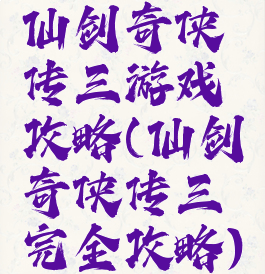 仙剑奇侠
传三游戏
攻略(仙剑
奇侠传三
完全攻略)